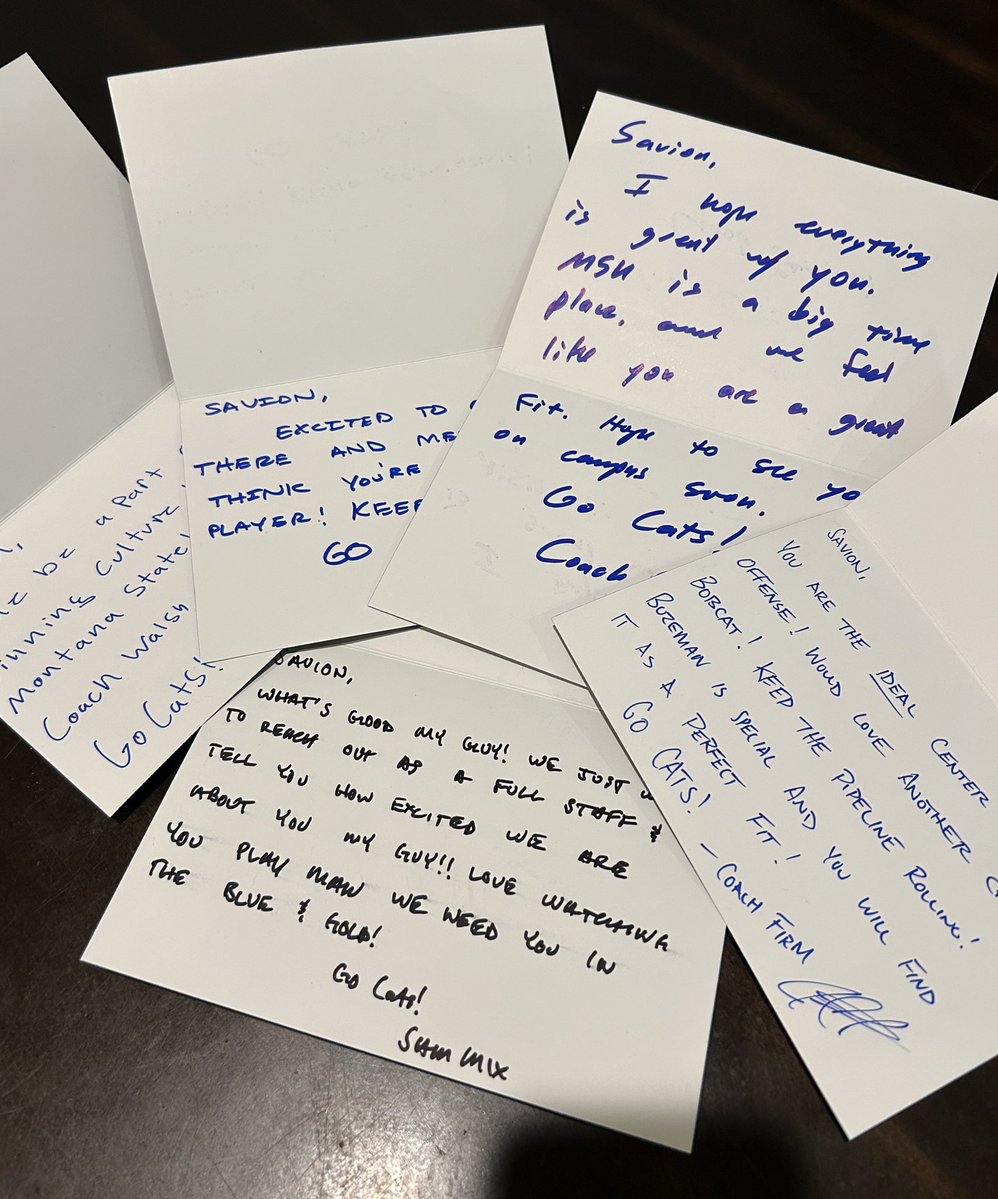 be a part
Winning Culture
Montana State!
Coach Walsh
Go Cats!
SAVION,
EXCITED TO
THERE AND
THINK YOU'RE
PLAYER! KEEP
GO
Savion,
I hope everything
is great w/ you.
MSU is a big time
place, and we feel
like you are a great
Fit. Hope to see yo
on campus soon.
Go Cats!
Coach
SAVION,
WHAT'S GOOD MY GUY! WE JUST
TO REACH OUT AS A FULL STAFF &
TELL YOU HOW EXCITED WE ARE
ABOUT YOU MY GUY!! LOVE WATCHING
YOU PLAY MAN WE NEED YOU IN
THE BLUE & GOLD!
GO CATS!
SAM MIX
SAVION,
YOU ARE THE IDEAL CENTER
OFFENSE! WOULD LOVE ANOTHER
BOBCAT! KEEP THE PIPELINE ROLLING!
BOZEMAN IS SPECIAL AND YOU WILL FIND
IT AS A PERFECT FIT!
GO CATS!
- COACH FIRM